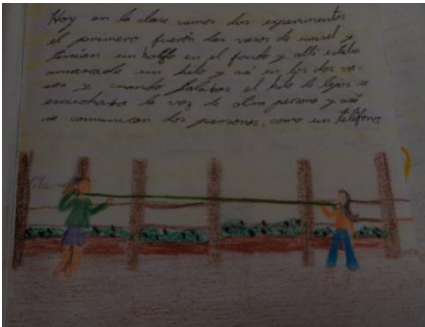 Hoy en la clase vimos dos experimentos
el primero fueron dos vasos de y
tenían un en el fondo y allí estaba
amarrado un hilo y así en los dos va-
sos y cuando el hilo de lejos se
escuchaba la voz de otra persona y así
se comunican dos personas, como un teléfono